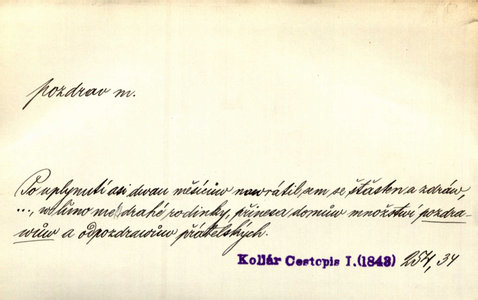 pozdrav m.
Po uplynutí asi dwau měsícůw nawrátil sem se, šťasten a zdráw,
..., w lůno mé drahé rodinky, přinesa domůw množstwí pozdra-
wůw a odpozdrawůw přátelských.
Kollár Cestopis I. (1843) 254, 34